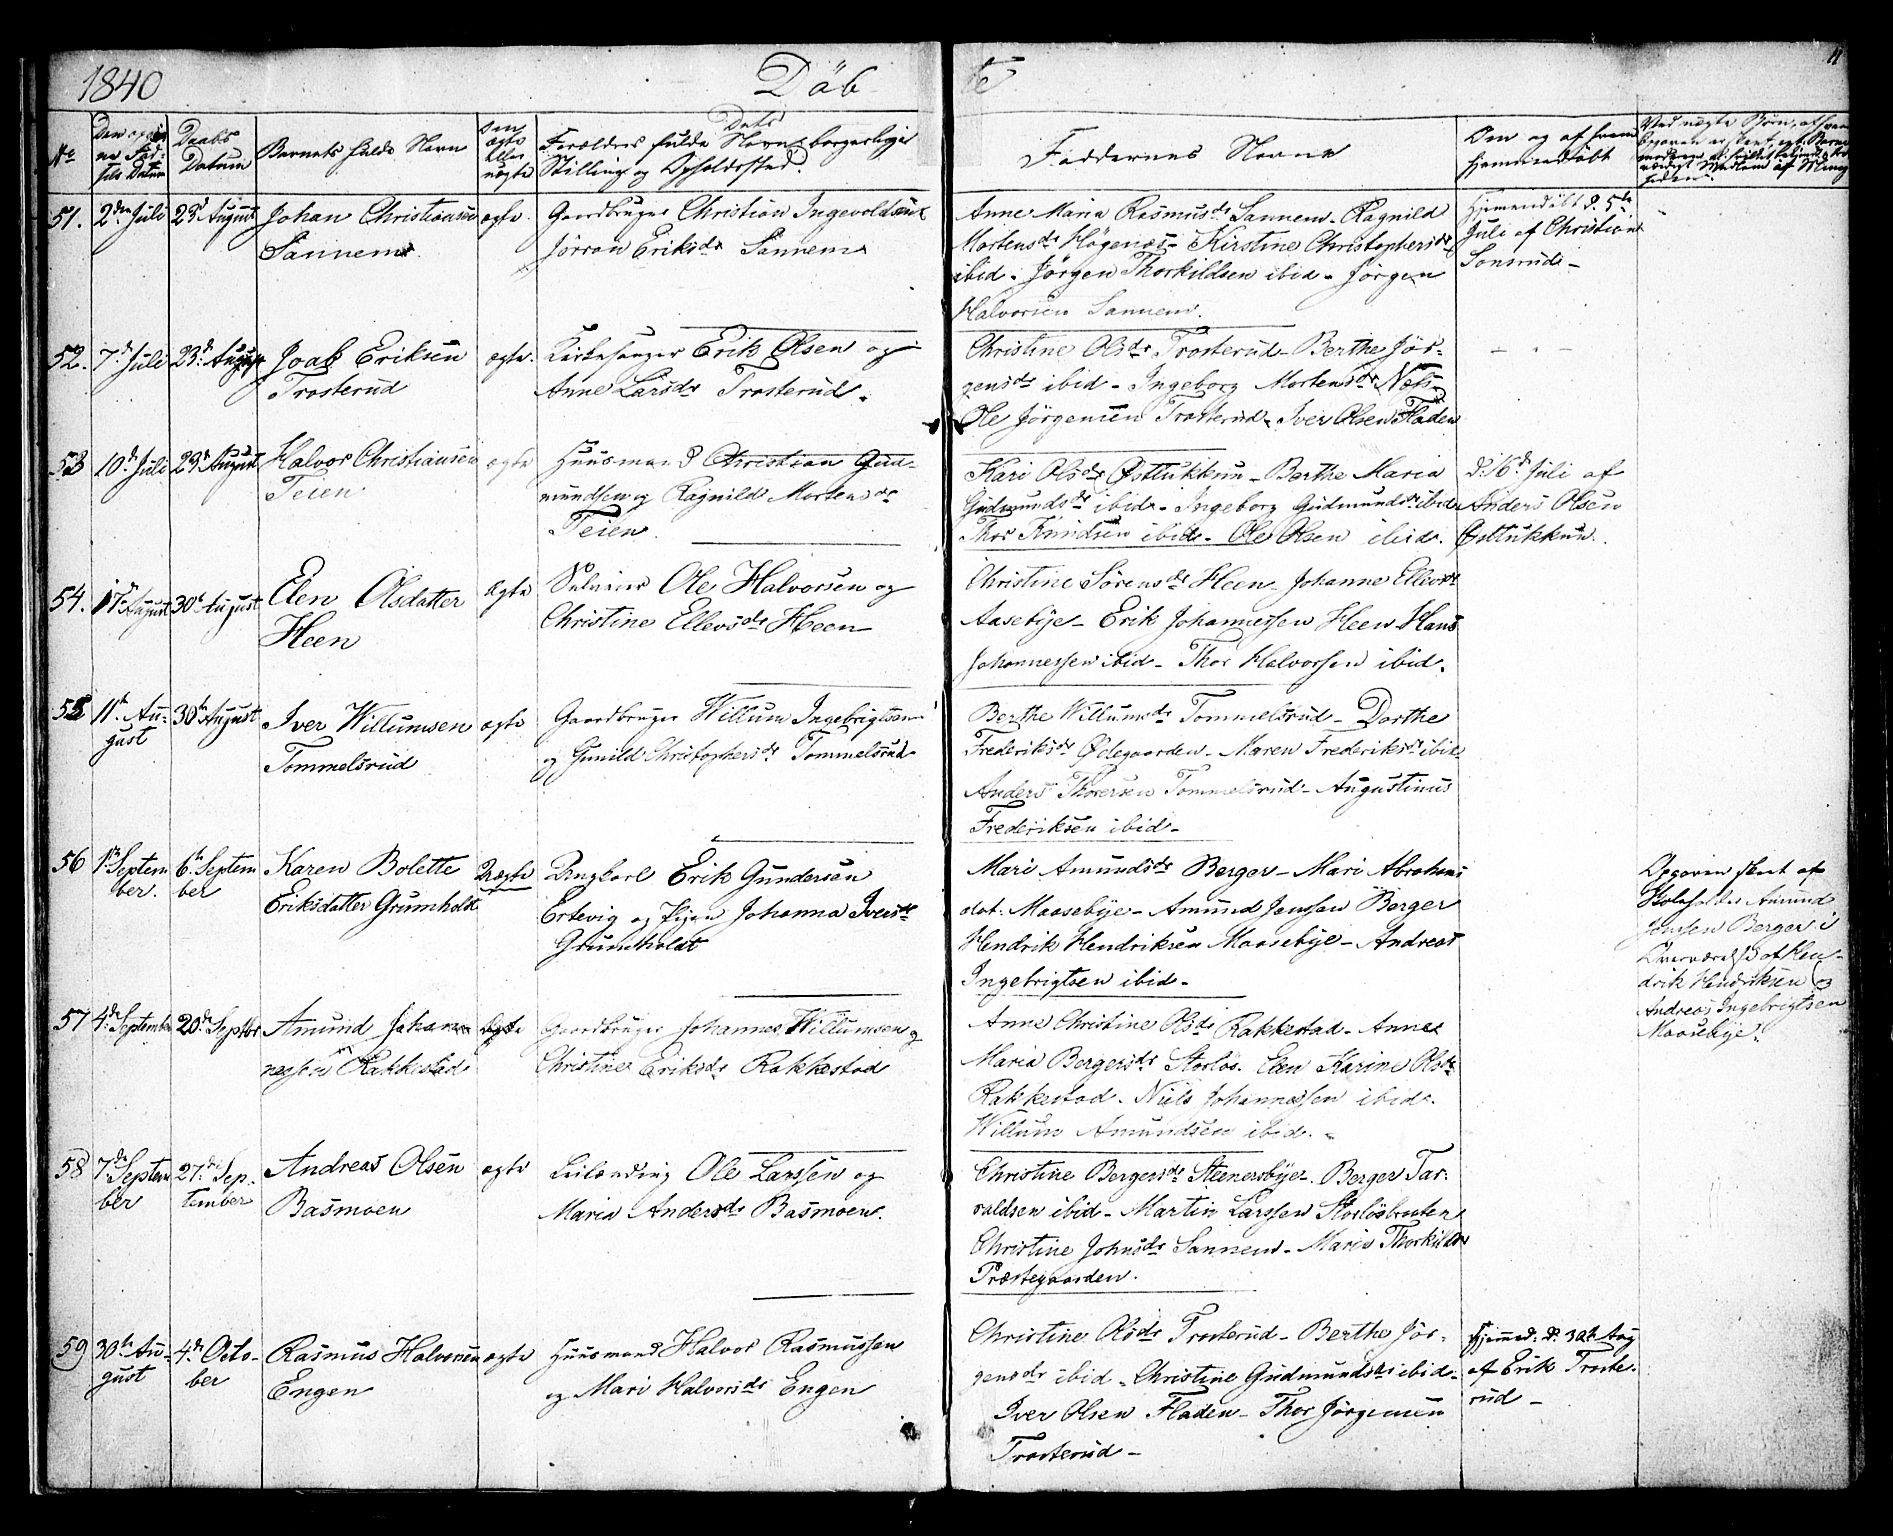 1840
Döb
te
11
No
Daabs
Datum
Barnets fulde Navn
Forældres fulde Navne borgerlige
Stilling og Opholdssted.
Faddernes Navne
Om og af hvem
hjemmedöbt
51. 2den Juli 23d August Johan Christiansen ægte Gaardbruger Christian Ingevoldsen
Sannem Jörran Eriksdr Sannem
Anne Maria Rasmusdr Sannem - Ragnild
Mortensdr Högenæs - Kirstine Christophersdr
ibid - Jörgen Thorkildsen ibid - Jörgen
Halvorsen Sannem.
Hjemmedöbt d. 5te
Juli af Christian
Sonsrud -
52. 7d Juli 23d August Joab Eriksen ægte. Kirkesanger Erik Olsen og
Trosterud Anne Larsdr Trosterud.
Christine Olsdr Trosterud - Berthe Jör-
gensdr ibid - Ingeborg Mortensdr Næs
Ole Jörgensen Trosterud - Iver Olsen Fladen
53 10d Juli 23d August Halvor Christiansen ægte Huusmand Christian Gud-
Teien mundsen og Ragnild Mortensdr
Teien.
Kari Olsdr Østtukkun - Berthe Maria
Gudmundsdr ibid - Ingeborg Gudmundsdr ibid
Thor Knudsen ibid - Ole Olsen ibid.
d. 16d Juli af
Anders Olsen
Østtukkun.
54. August 30te August Elen Olsdatter ægte Ole Halvorsen og
Heen Christine Ellevsdr Heen
Christine Sörensdr Heen - Johanne Ellevsdr
Aasebye - Erik Johannessen Heen - Hans
Johannessen ibid - Thor Halvorsen ibid.
55 11te Au- 30te August Iver Willumsen ægte Gaardbruger Willum Ingebrigtsen
gust Tommelsrud og Gunild Christophersdr Tommelsrud
Berthe Willumsdr Tommelsrud - Dorthe
Frederiksdr Ødegaarden - Maren Frederiksdr ibid
Anders Thoresen Tommelsrud - Augustinus
Frederiksen ibid -
56 1ste Septem 6te Septem Karen Bolette Uægte Ungkarl Erik Gundersen
ber. ber Eriksdatter Grumholdt Ertevig og Pigen Johanna Iversdr
Grumholdt
Mari Amundsdr Berger - Mari Abrahams
dat: Maasebye - Amund Jenssen Berger
Hendrik Hendriksen Maasebye - Andreas
Ingebrigtsen ibid -
Opgaven skeet af
Amund
Jenssen Berger i
Overværelse af Hen-
drik Hendriksen og
Andreas Ingebrigtsen
Maasebye.
57 4de September 20de Septbr Amund Johan- ægte Gaardbruger Johannes Willumsen og
nessen Rakkestad Christine Eriksdr Rakkestad
Anne Christine Olsdr Rakkestad - Anne
Maria Bergersdr Storlös. Elen Karine Olsdr
Rakkestad - Niels Johannessen ibid.
Willum Amundsen ibid. -
58 7de Septem 27de Sep- Andreas Olsen ægte Leilænding Ole Larssen og
ber tember Basmoen Maria Andersdr Basmoen.
Christine Bergersdr Steenersbye - Berger Tar-
raldsen ibid - Martin Larssen Storlösbraaten
Christine Johnsdr Sannem - Maria Thorkildsdr
Præstegaarden.
59 30te Au- 4de Octo- Rasmus Halvorsen ægte Huusmand Halvor Rasmussen
gust ber Engen og Mari Halvorsdr Engen
Christine Olsdr Trosterud - Berthe Jör-
gensdr ibid - Christine Gudmundsdr ibid -
Iver Olsen Fladen - Thor Jörgensen
Trosterud -
Hjemmed: d. 30te Aug
af Erik Troste-
rud -